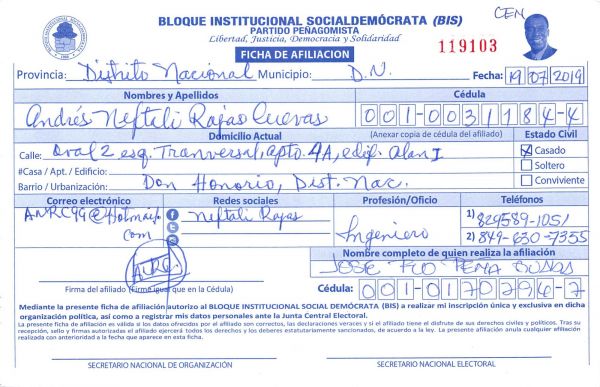 BLOQUE INSTITUCIONAL SOCIALDEMÓCRATA (BIS)
PARTIDO PEÑAGOMISTA
Libertad, Justicia, Democracia y Solidaridad
FICHA DE AFILIACION
119103
CEN
Provincia: Distrito Nacional Municipio: D.N. Fecha: 19/07/2019
Nombres y Apellidos Cédula
Andrés Neftali Rojas Cuevas 001-0031184-4
Domicilio Actual (Anexar copia de cédula del afiliado) Estado Civil
Calle: Oval 2 esq. Tranversal, apto. 4A, edif. Alan I Casado
#Casa / Apt. / Edificio: Soltero
Barrio / Urbanización: Don Honorio, Dist. Nac. Conviviente
Correo electrónico Redes sociales Profesión/Oficio Teléfonos
ANRC99@Hotmail Neftali Rojas Ingeniero 1) 829589-1051
com 2) 849-630-7355
Nombre completo de quien realiza la afiliación
JOSE FCO PEÑA
Firma del afiliado (Firme igual que en la Cédula) Cédula: 001-0170294-7
Mediante la presente ficha de afiliación autorizo al BLOQUE INSTITUCIONAL SOCIAL DEMÓCRATA (BIS) a realizar mi inscripción única y exclusiva en dicha
organización política, así como a registrar mis datos personales ante la Junta Central Electoral.
La presente ficha de afiliación es válida si los datos ofrecidos por el afiliado son correctos, las declaraciones veraces y si el afiliado tiene el disfrute de sus derechos civiles y políticos. Tras su
recepción, sello y firmas autorizadas el afiliado ejercerá todos los derechos y los deberes estatutariamente sancionados, de acuerdo a la ley. La presente afiliación anula cualquier afiliación
realizada con anterioridad a la fecha que aparece en esta ficha.
SECRETARIO NACIONAL DE ORGANIZACIÓN SECRETARIO NACIONAL ELECTORAL